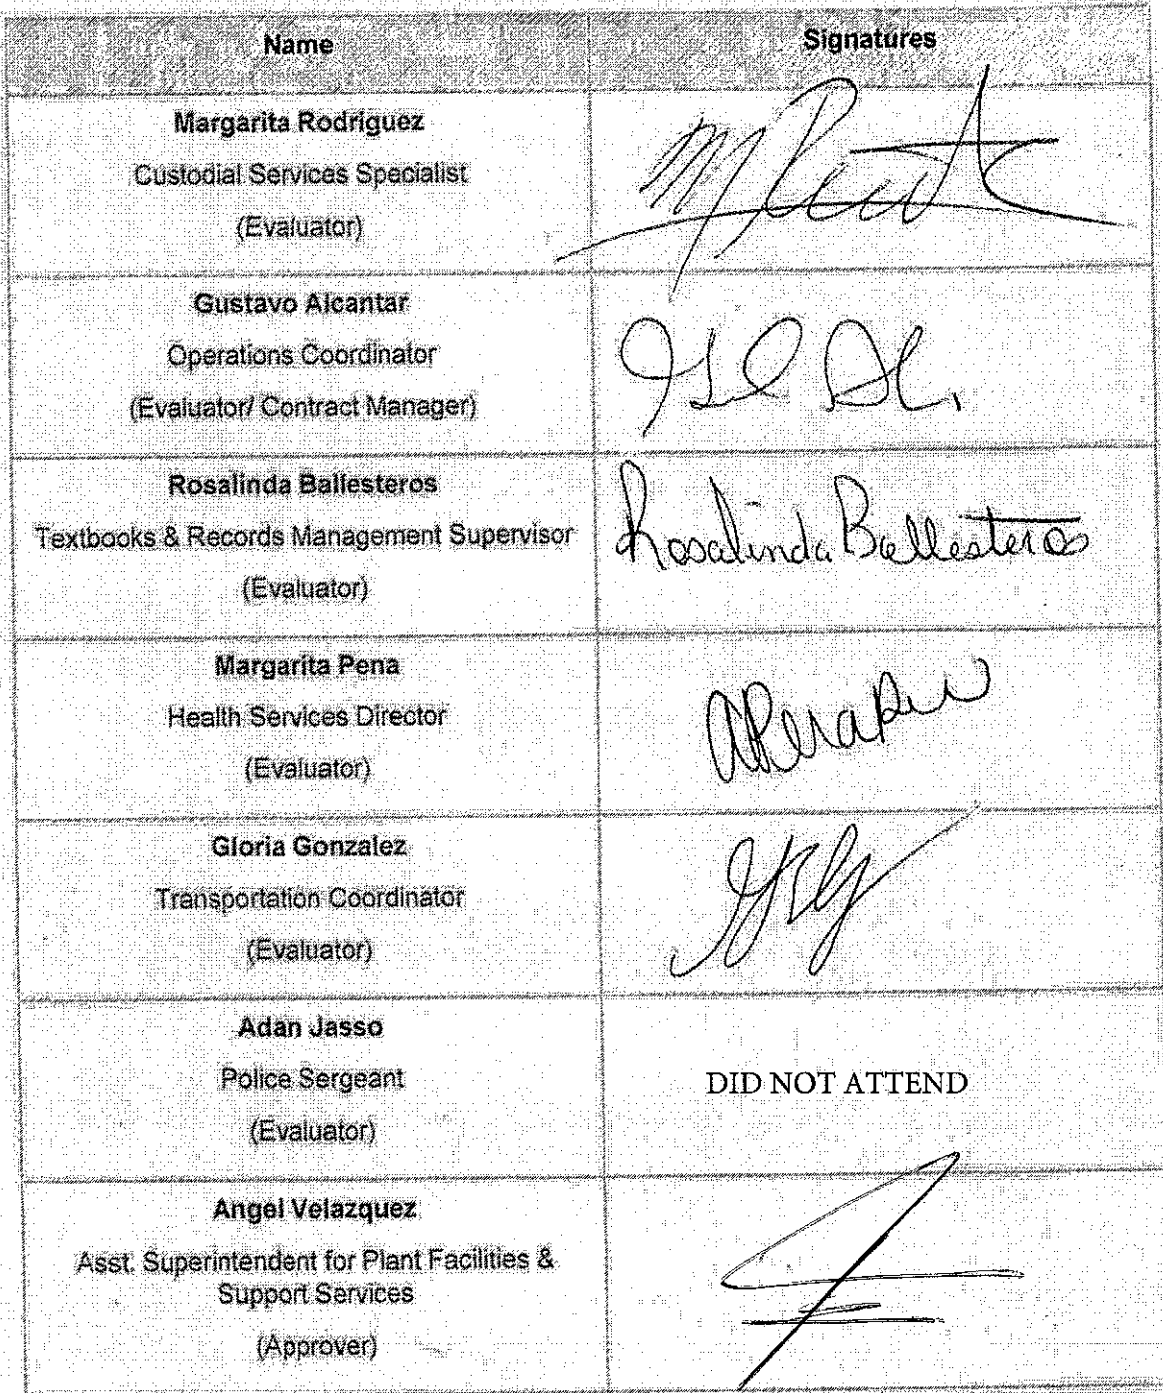 Name
Signatures
Margarita Rodriguez
Custodial Services Specialist
(Evaluator)
Gustavo Alcantar
Operations Coordinator
(Evaluator/ Contract Manager)
Rosalinda Ballesteros
Textbooks & Records Management Supervisor
(Evaluator)
Rosalinda Ballesteros
Margarita Pena
Health Services Director
(Evaluator)
Gloria Gonzalez
Transportation Coordinator
(Evaluator)
Adan Jasso
Police Sergeant
(Evaluator)
DID NOT ATTEND
Angel Velazquez
Asst. Superintendent for Plant Facilities &
Support Services
(Approver)